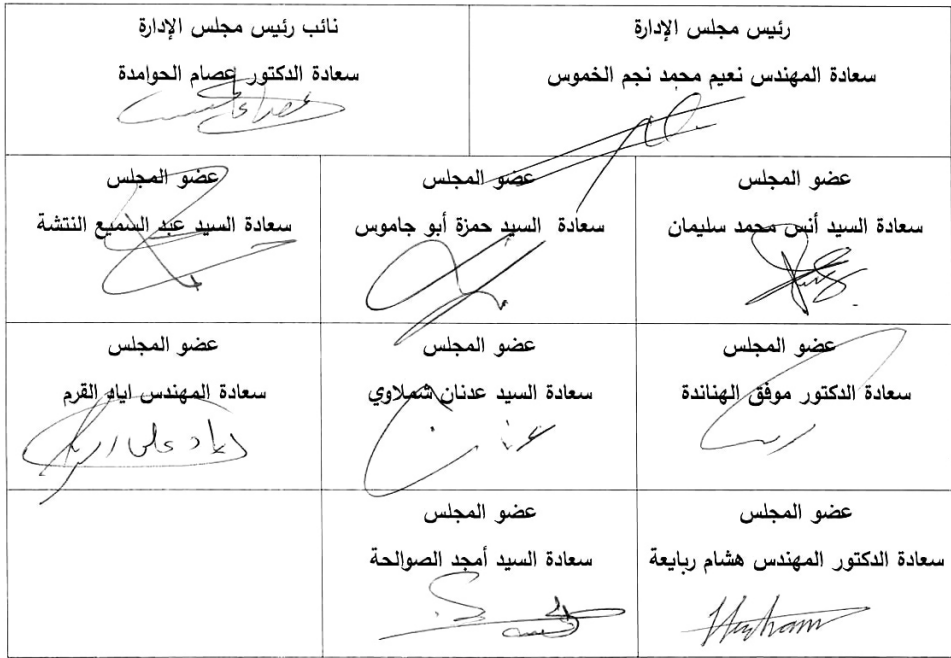 رئيس مجلس الإدارة
سعادة المهندس نعيم محمد نجم الخموس
نائب رئيس مجلس الإدارة
سعادة الدكتور عصام الحوامدة
عضو المجلس
سعادة السيد أنس محمد سليمان
عضو المجلس
سعادة السيد حمزة أبو جاموس
عضو المجلس
سعادة السيد عبد السميع النتشة
عضو المجلس
سعادة الدكتور موفق الهناندة
عضو المجلس
سعادة السيد عدنان شملاوي
عضو المجلس
سعادة المهندس اياد القرم
عضو المجلس
سعادة الدكتور المهندس هشام ربايعة
Hisham
عضو المجلس
سعادة السيد أمجد الصوالحة